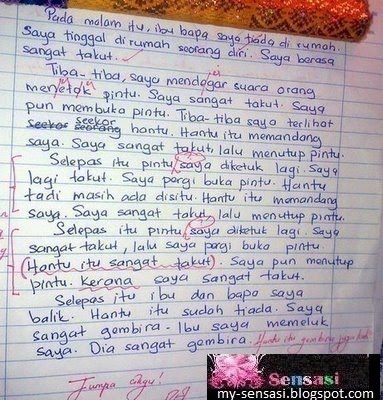 Pada malam itu, ibu bapa saya tiada di rumah.
Saya tinggal di rumah seorang diri. Saya berasa
sangat takut.
Tiba-tiba, saya mendegar suara orang
menyetok pintu. Saya sangat takut. Saya
pun membuka pintu. Tiba-tiba saya terlihat
seekor seorang hantu. Hantu itu memandang
seekor
saya. Saya sangat takut lalu menutup pintu.
Selepas itu pintu saya diketuk lagi. Saya
lagi takut. Saya pergi buka pintu. Hantu
tadi masih ada disitu. Hantu itu memandang
saya. Saya sangat takut, lalu menutup pintu.
Selepas itu pintu saya diketuk lagi. Saya
sangat takut, lalu saya pergi buka pintu.
(Hantu itu sangat takut). Saya pun menutup
pintu. Kerana saya sangat takut.
Selepas itu ibu dan bapa saya
balik. Hantu itu sudah tiada. Saya
sangat gembira. Ibu saya memeluk
saya. Dia sangat gembira. Hantu itu gembira juga
Jumpa cikgu!
Sensasi
my-sensasi.blogspot.com